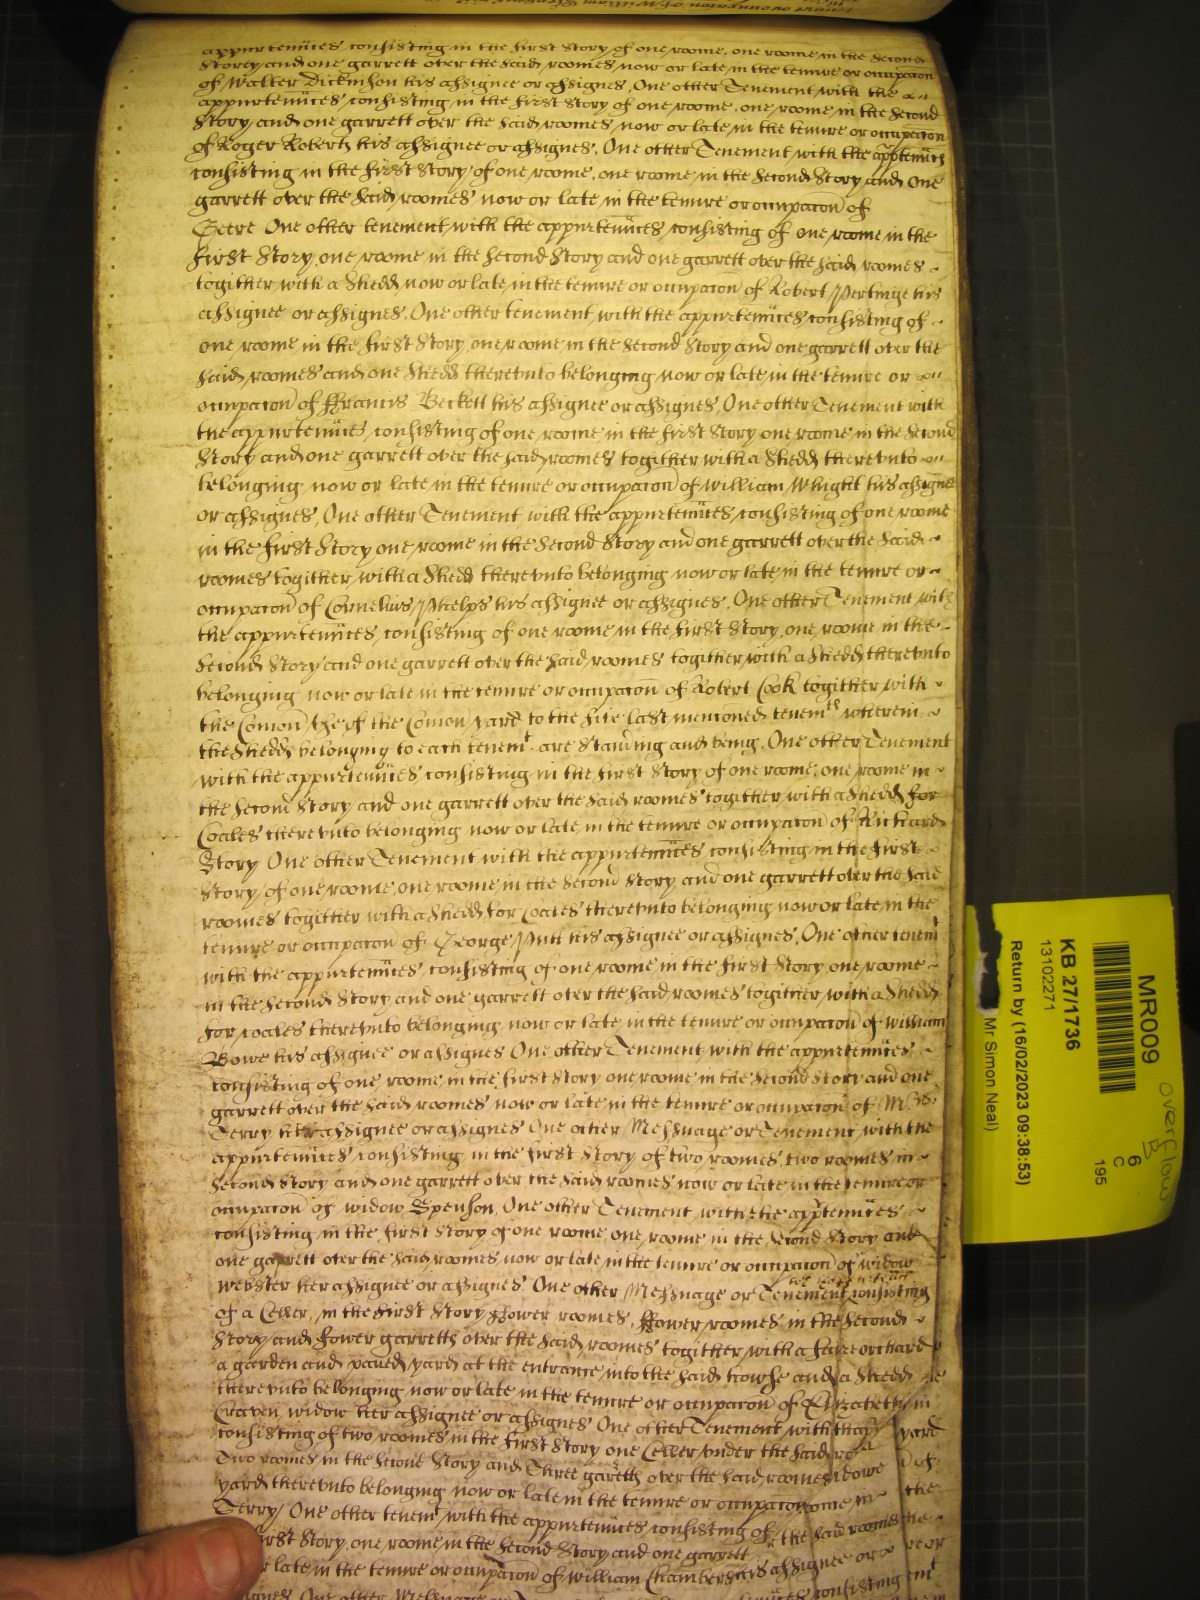 appurtenñces consisting in the first Story of one roome, one roome in the second
Storey and one garrett over the said roomes now or late in the tenure or occupacon
of Walter Dickinson his assignee or assignes, One other Tenement with the
appurtenñces consisting in the first Story of one roome, one roome in the Second
Story and one garrett over the said roomes now or late in the tenure or occupacon
of Roger Roberts his assignee or assignes, One other Tenement with the apptenñces
consisting in the first Story of one roome, one roome in the Second Story and One
garrett over the said roomes now or late in the tenure or occupacon of
Geere One other tenement with the appurtenñces consisting of one roome in the
first Story, one roome in the Second Story and one garrett over the said roomes
togither with a Shedd now or late in the tenure or occupacon of Robert his
assignee or assignes, One other tenement with the appurtenñces consisting of
one roome in the first Story, one roome in the Second Story and one garrett over the
said roomes and one Shedd therevnto belonging now or late in the tenure or
occupacon of ffrancis Beckett his assignee or assignes, One other Tenement with
the appurtenñces consisting of one roome in the first Story one roome in the Second
Story and one garrett over the said roomes togither with a Shedd therevnto
belonging now or late in the tenure or occupacon of William Whight his assignee
or assignes, One other Tenement with the appurtenñces consisting of one roome
in the first Story one roome in the Second Story and one garrett over the said
roomes togither with a Shedd therevnto belonging now or late in the tenure or
occupacon of Cornelius Phelps his assignee or assignes, One other Tenement with
the appurtenñces consisting of one roome in the first Story, one roome in the
Second Story and one garrett over the said roomes togither with a Shedd therevnto
belonging now or late in the tenure or occupacon of Robert Cook togither with
the Comon vse of the Comon yard to the five last mencioned tenemts wherein
the Shedds belonging to each tenemt are standing and being, One other Tenement
with the appurtenñces consisting in the first Story of one roome, one roome in
the Second Story and one garrett over the said roomes togither with a Shedd for
Coales therevnto belonging now or late in the tenure or occupacon of Richard
Story One other Tenement with the appurtenñces consisting in the first
Story of one roome, one roome in the Second Story and one garrett over the said
roomes togither with a Shedd for Coales therevnto belonging now or late in the
tenure or occupacon of George his assignee or assignes, One other tenemt
with the appurtenñces consisting of one roome in the first Story, one roome
in the Second Story and one garrett over the said roomes togither with a Shedd
for coales therevnto belonging now or late in the tenure or occupacon of William
Bowe his assignee or assignes One other Tenement with the appurtenñces
consisting of one roome in the first Story one roome in the Second Story and one
garrett over the said roomes now or late in the tenure or occupacon of
Terry assignee or assignes One other Messuage or Tenement with the
appurtenñces consisting in the first Story of two roomes, two roomes in
Second Story and one garrett over the said roomes now or late in the tenure or
occupacon of widow Spenson, One other Tenement with the apptenñces
consisting in the first Story of one roome, one roome in the Second Story and
one garrett over the said roomes now or late in the tenure or occupacon of widow
Webster her assignee or assignes One other Messuage or Tenement consisting
of a Celler, in the first Story fower roomes, ffower roomes in the Second
Story and fower garretts over the said roomes togither with a faire orchard
a garden and paued yard at the entrance into the said howse and a Shedd
therevnto belonging now or late in the tenure or occupacon of Elizabeth
Craven widow her assignee or assignes One other Tenement with
consisting of two roomes in the first Story one Celler vnder the said yard
Two roomes in the Second Story and Three garretts over the said roomes of
yard therevnto belonging now or late in the tenure or occupacon the
Terry One other tenemt with the appurtenñces consisting of
first Story, one roome in the Second Story and one garrett the said roomes
or late in the tenure or occupacon of William Chambers his assignee or
One other
MR009
overflow
6
C
195
KB 27/1736
13102271
Return by (16/02/2023 09:38:53)
Mr Simon Neal)